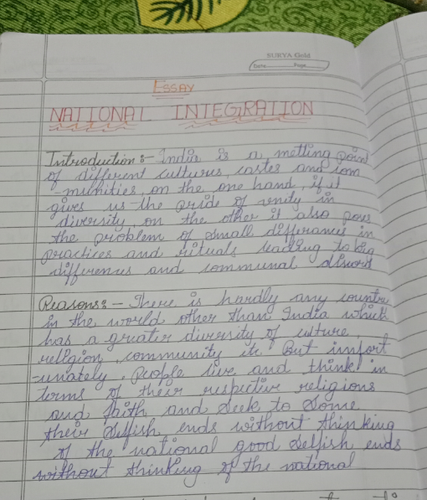 SURYA Gold
Date Page
ESSAY
NATIONAL INTEGRATION
Introduction:- India is a melting point
of different cultures, castes and com
-munities, on the one hand, if it
gives us the pride of unity in
diversity, on the other it also pose
the problem of small differances in
practices and rituals leading to big
differences and communal discord
Reasons:- There is hardly any countre
in the world other than India which
has a greater diversity of culture
religion, community etc. But unfort
-unately, People live and think in
terms of their respective religions
and faith and seek to some
their selfish ends without thinking
of the national good selfish ends
without thinking of the national